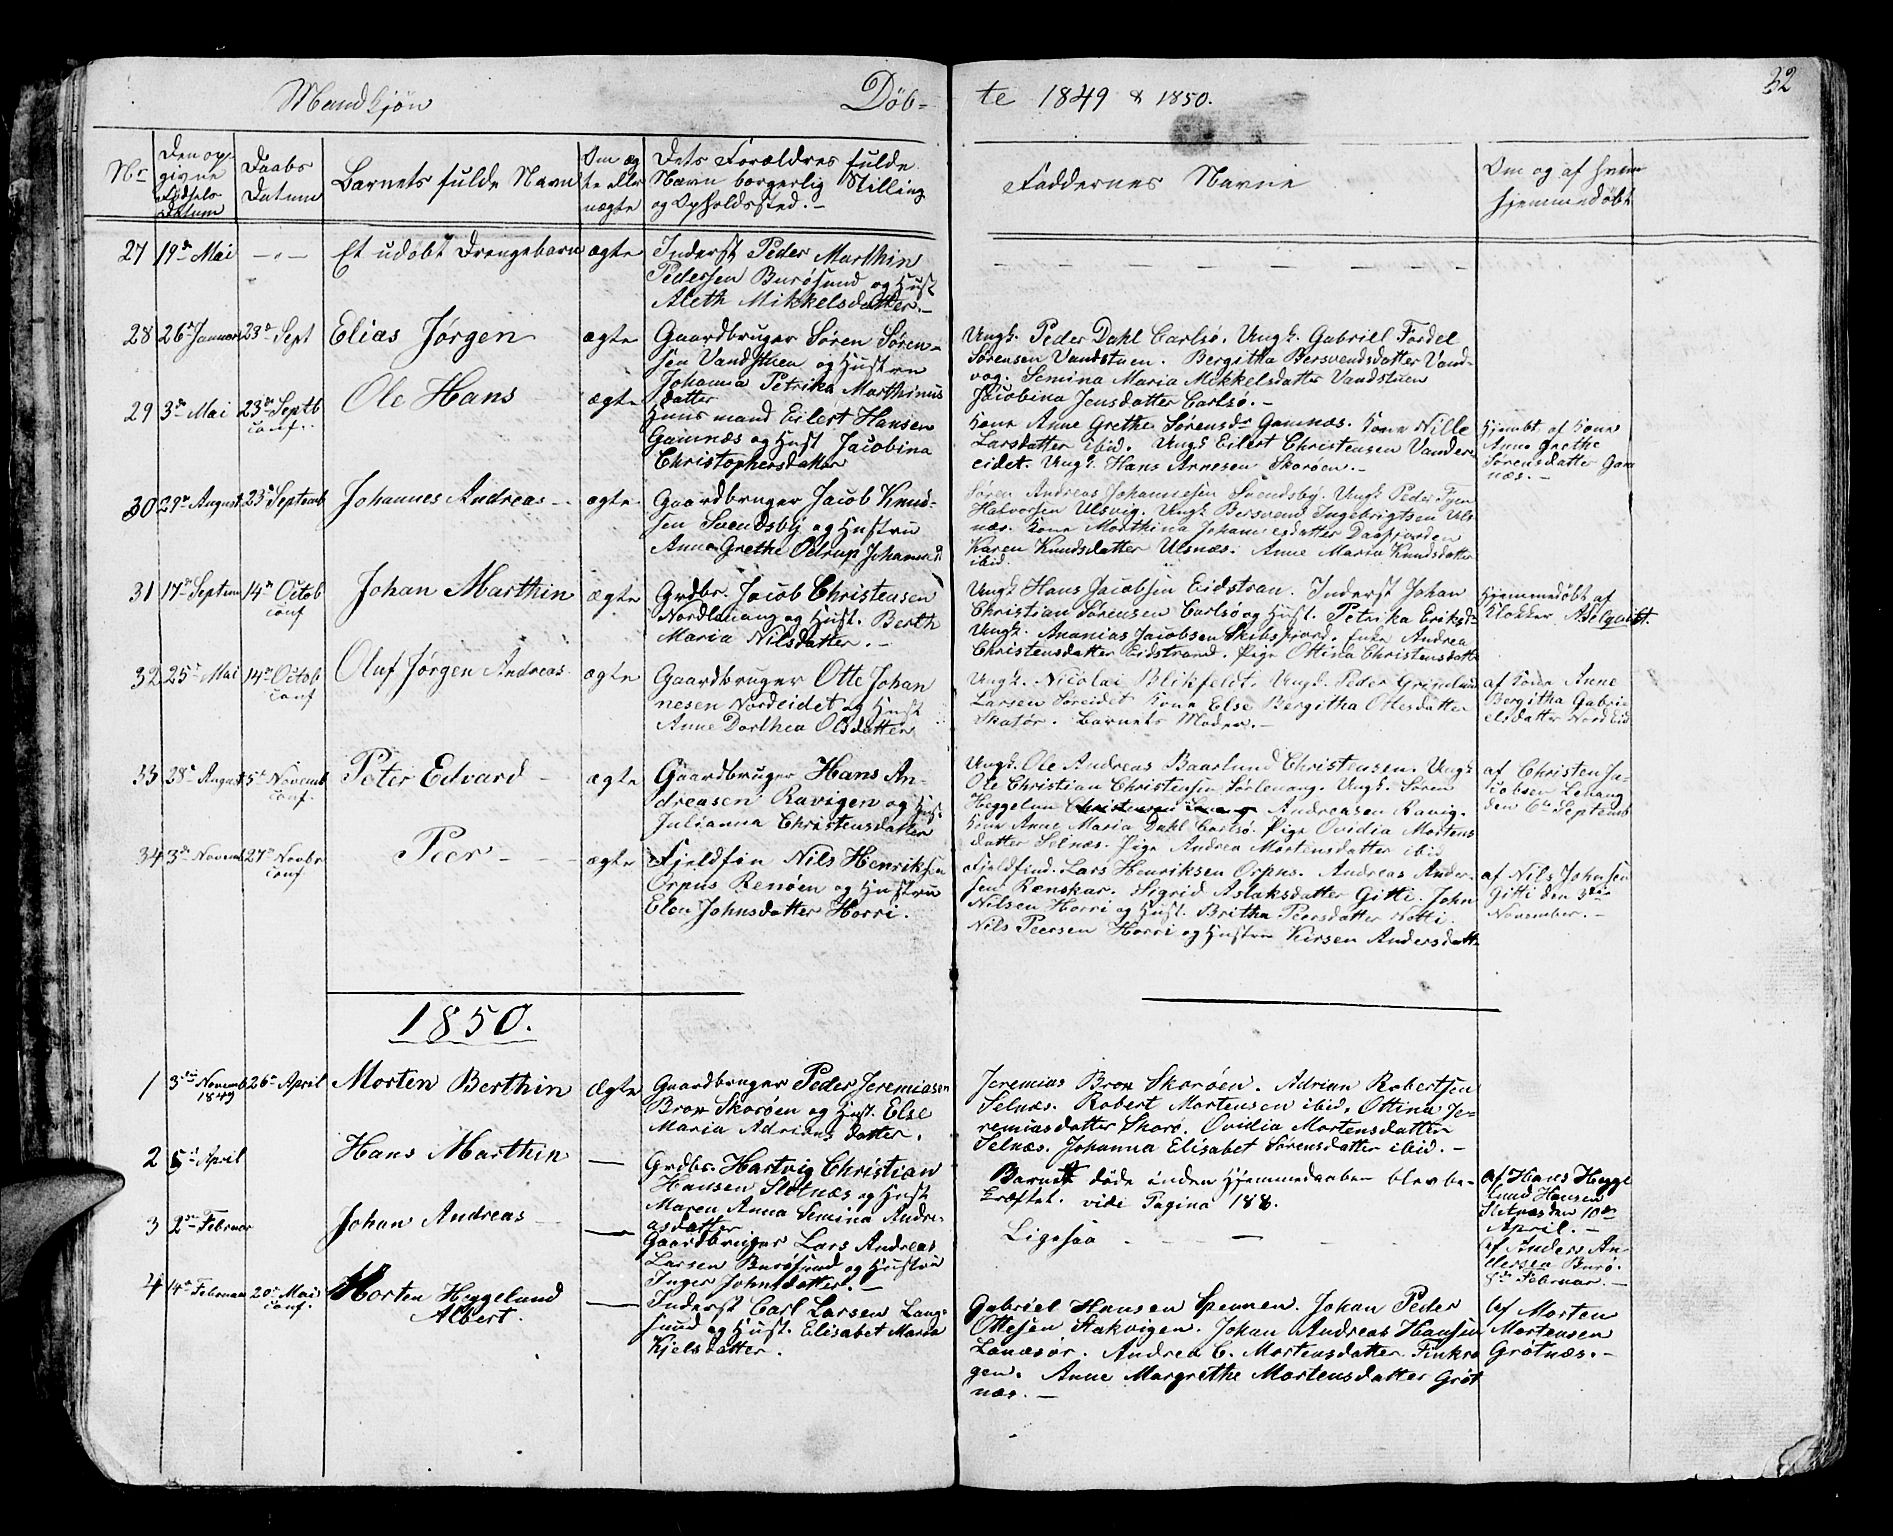 Mandkjøn Døb-
te 1849 & 1850.
32
Nr
Den op-
givne
Fødsels
Datum
Daabs
Datum
Barnets fulde Navn
Om æg
te eller
uægte
Dets Forældres fulde
Navn borgerlig Stilling
og Opholdssted.-
Faddernes Navne
Om og af hvem
hjemmedøbt
27 19de Mai -"- Et udøbt Drengebarn ægte
Inderst Peder Marthin
Pedersen Burøsund og Hust
Aleth Mikkelsdatter.-
28 26de Januar 23de Sept Elias Jørgen ægte
Gaardbruger Søren Søren-
sen Vandstuen og Hustru
Johanna Petrika Marthinus
datter
Ungk. Peder Dahl Carlsø. Ungk. Gabriel Fordel
Sørensen Vandstuen. Bergitha Bersvendsdatter Vand-
vog. Semina Maria Mikkelsdatter Vandstuen
Jacobina Jensdatter Carlsø.-
29 3de Mai 23de Septb conf. Ole Hans ægte
Huusmand Eilert Hansen
Gamnæs og Hust Jacobina
Christophersdatter
Kone Anne Grethe Sørensdr Gamnæs. Kone Nille
Larsdatter ibid. Ungk Eilert Christensen Vander-
eidet. Ungk. Hans Arnesen Skorøen.-
Hjembt. af Kone
Anne Grethe
Sørensdatter Gam
næs.-
30 29de August 23de Septemb Johannes Andreas - ægte
Gaardbruger Jacob Knud-
sen Svendsby og Hustru
Anne Grethe Odrup Johannesd
Søren Andreas Johannesen Svendsby. Ungk Peder Fyen
Halvorsen Ulsvig. Ungk Bersvend Ingebrigtsen Uls-
næs. Kone Marthina Johannesdatter Daafjorden
Karen Knudsdatter Ulsnæs. Anne Maria Knudsdatter
ibid.
31 17de Septem 14de Octob conf Johan Marthin ægte
Grdbr. Jacob Christensen
Nordlenang og Hust. Berth
Maria Nilsdatter.-
Ungk Hans Jacobsen Eidstran. Inderst Johan
Christian Sørensen Carlsø og Hust. Petrika Eriksdr
Ungk. Ananias Jacobsen Skibsfjord. Enke Andrea
Christensdatter Eidstrand. Pige Ottina Christensdatte
Hjemmedøbt af
Klokker Adelqvist.
32 25de Mai 14de Octob conf Oluf Jørgen Andreas ægte
Gaardbruger Otte Johan
nesen Nordeidet og Hust
Anne Dorthea Olsdatter
Ungk. Nicolai Blikfeldt. Ungk. Peder Grønlund
Larsen Søreidet Kone Else Bergitha Ottesdatter
Skatør. Barnets Moder.-
af Kone Anne
Bergitha Gabri-
elsdatter NordEid
33 28de August 5te Novemb conf. Peter Edvard - ægte
Gaardbruger Hans An-
dreasen Ravigen og Hus.
Julianna Christensdatter
Ungk. Ole Andreas Baarlund Christensen. Ungk.
Ole Christian Christensen Sørlenang. Ungk. Søren
Heggelun Andreasen Ravig.
Kone Anne Maria Dahl Carlsø. Pige Ovidia Mortens
datter Selnæs. Pige Andrea Mortensdatter ibid
af Christen Ja-
cobsen Lenang
den 6te Septemb
34 3de Novemb 27de Novbr conf Peer - - - ægte
Fjeldfin Nils Henriksen
Orpus Renøen og Hustru
Elen Johnsdatter Horri.
Fjeldfind. Lars Henriksen Orpus. Andreas Ander-
sen Renskar. Sigrid Aslaksdatter Gitti. John
Nilsen Horri og Hust. Britha Peersdatter Notti.
Nils Peersen Horri og Hustru Kirsen Andersdatt
af Nils Johnsen
Gitti den 5te
November.-
1850.
1 3die Novemb 1849 26de April Morten Berthin Ægte
Gaardbruger Peder Jeremiasen
Brox Skorøen og Hust. Else
Maria Adriansdatter.
Jeremias Brox Skorøen. Adrian Robertsen
Selnæs. Robert Mortensen ibid. Ottina Je-
remiasdatter Skorø. Ovidia Mortensdatter
Selnæs. Johanna Elisabet Sørensdatter ibid.-
2 5te April Hans Marthin -
Grdbr. Hartvig Christian
Hansen Sletnæs og Hust
Maren Anna Semina Andre-
asdatter
Barnet døde inden Hjemmedaaben blev be-
kræftet. vide Pagina 188.
af Hans Hegge
lund Hansen
Sletnæs den 10de
April.-
3 2den Februar Johan Andreas -
Gaardbruger Lars Andreas
Larsen Burøsund og Hustru
Inger Johnsdatter.-
Ligesaa - - -
af Anders An-
dersen Burø.
Februar.-
4 4de Februar 20de Mai conf. Morten Heggelund
Albert. -
Inderst Carl Larsen Lang-
sund og Hust. Elisabet Maria
Kjelsdatter.
Gabriel Hansen Spennen. Johan Peder
Ottesen Stakvigen. Johan Andreas Hansen
Lanesør. Andrea C. Mortensdatter Finkro
gen. Anne Margrethe Mortensdatter Grøt
næs.-
Af Morten
Mortensen
Grøtnæs.-